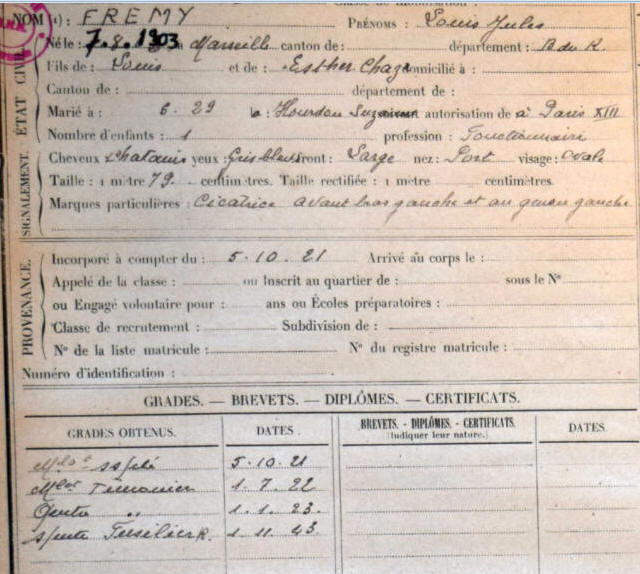 NOM (1) : FREMY PRÉNOMS : Louis Jules
Né le : 7.8.1903 à Marseille canton de : département : B du R.
Fils de : Louis et de : Esther domicilié à :
Canton de : département de :
Marié à : 6.29 à autorisation de à Paris XIII
Nombre d'enfants : 1 profession : Fonctionnaire
ÉTAT CIVIL
Cheveux chatains yeux : Gris bleus front : Large nez : Fort visage : Ovale
Taille : 1 mètre 79. centimètres. Taille rectifiée : 1 mètre centimètres.
Marques particulières : Cicatrice avant bras gauche et au genou gauche
SIGNALEMENT.
Incorporé à compter du : 5.10.21 Arrivé au corps le :
Appelé de la classe : ou Inscrit au quartier de : sous le N°
ou Engagé volontaire pour : ans ou Écoles préparatoires :
Classe de recrutement : Subdivision de :
N° de la liste matricule : N° du registre matricule :
PROVENANCE.
Numéro d'identification :
GRADES. — BREVETS. — DIPLÔMES. — CERTIFICATS.
GRADES OBTENUS. DATES. BREVETS. - DIPLÔMES. - CERTIFICATS. DATES.
(Indiquer leur nature.)
5.10.21
Timonier 1.7.22
1.1.23.
Fusilier 1.11.43